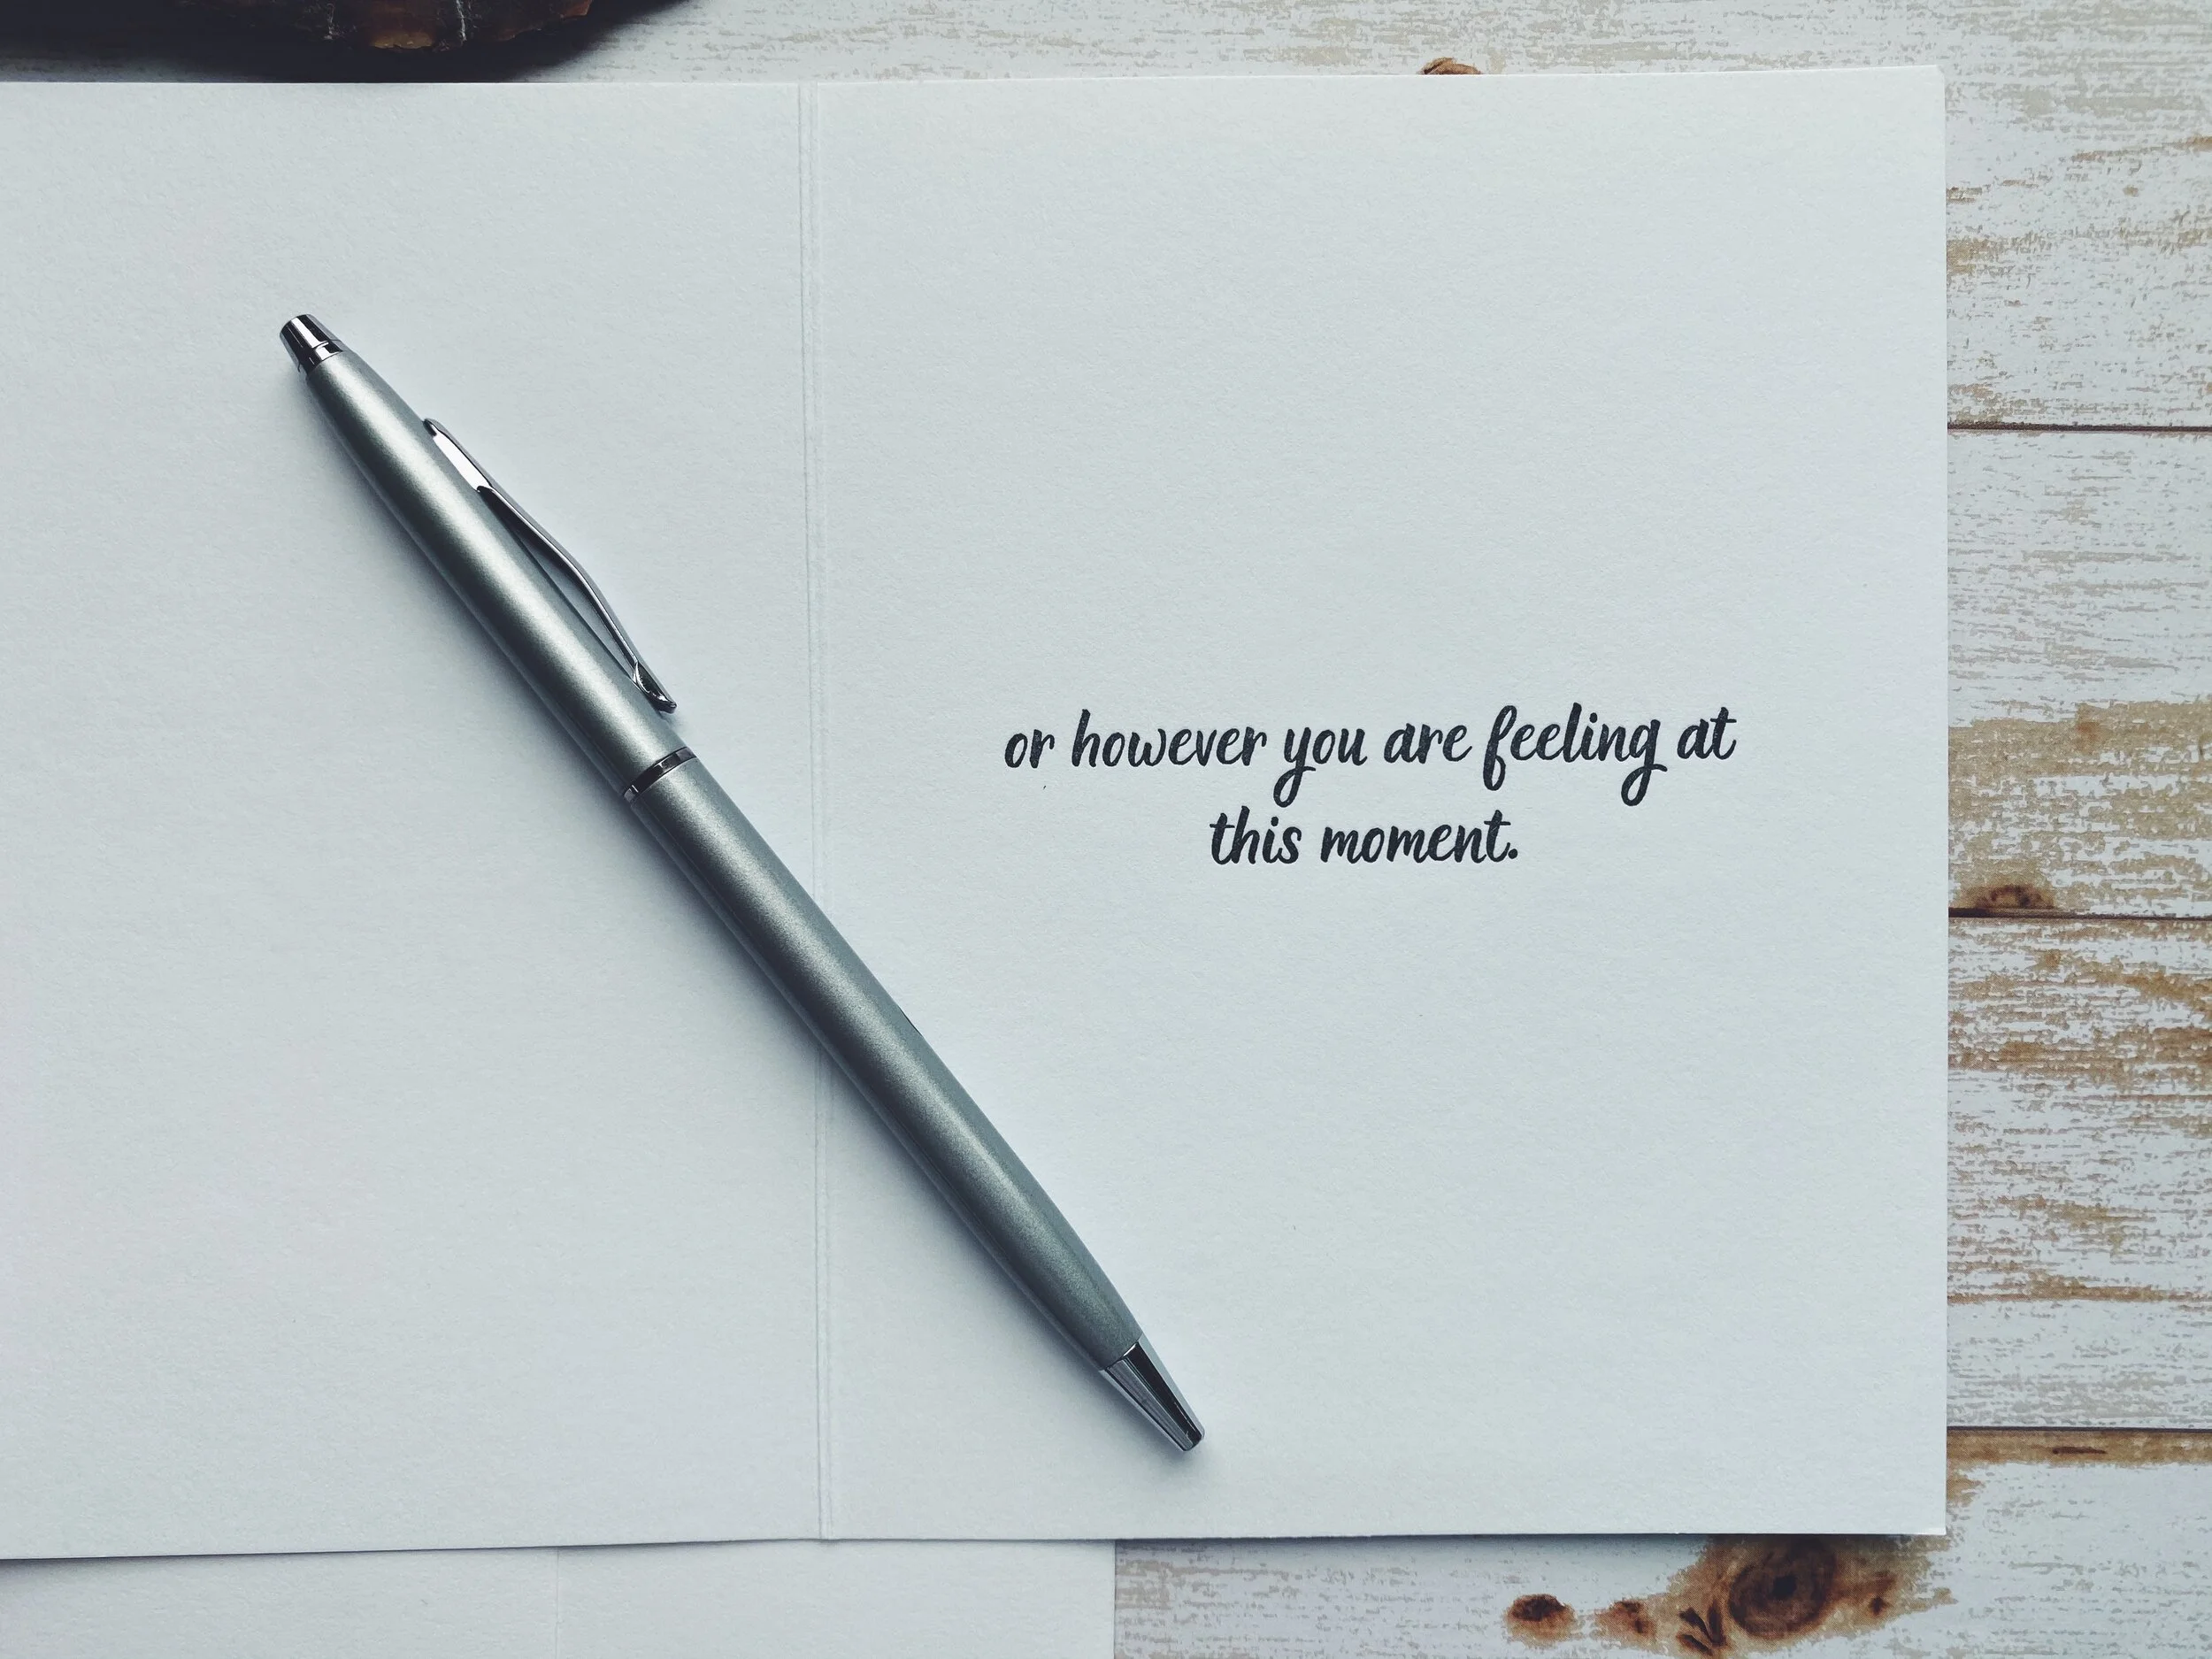 or however you are feeling at
this moment.